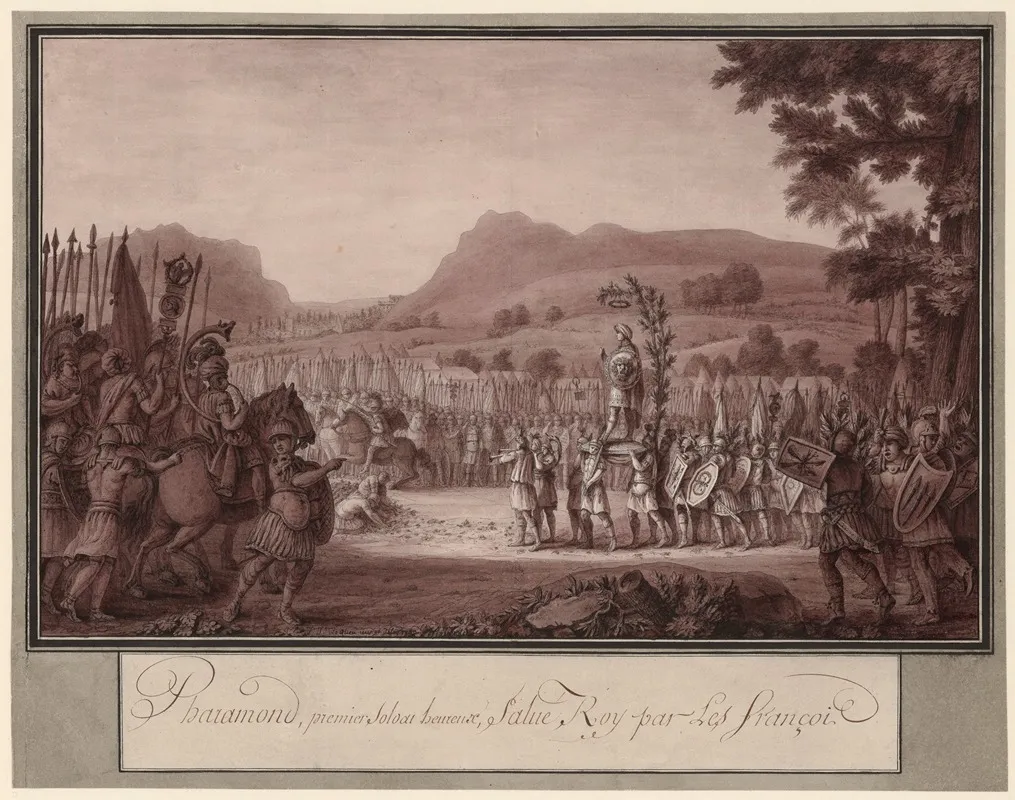 Pharamond, premier Soldat heureux, Salué Roy par Les François